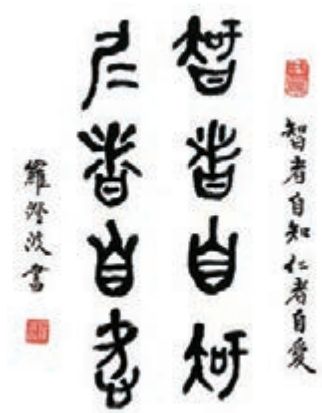 智者自知仁者自愛
智者自知
仁者自愛
羅澄波書